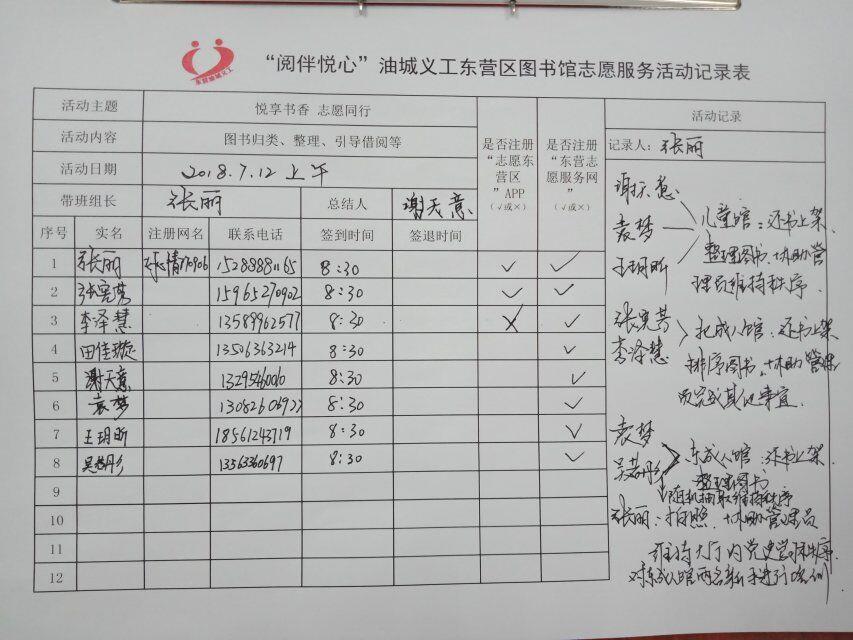 “阅伴悦心”油城义工东营区图书馆志愿服务活动记录表
活动主题 悦享书香 志愿同行
活动内容 图书归类、整理、引导借阅等
活动日期 2018.7.12 上午
带班组长 张丽 总结人 谢天意
是否注册“志愿东营区”APP（√或×）
是否注册“东营志愿服务网”（√或×）
序号 实名 注册网名 联系电话 签到时间 签退时间
1 张丽 15288881165 8:30 √ √
2 张宪芳 15965270902 8:30 √ √
3 李泽慧 13589962577 8:30 × √
4 田佳璇 13506363214 8:30 √
5 谢天意 1329546006 8:30 √
6 袁梦 8:30 √
7 王玥昕 18561243719 8:30 √
8 13563360697 8:30 √
9
10
11
12
活动记录
记录人：张丽
谢天意
袁梦
王玥昕
儿童馆：还书上架
整理图书、协助管
理员维持秩序
李泽慧
成人馆：还书上架
排序图书、协助管理
员完成其他事宜
袁梦
东成人馆：还书上架
整理图书
维持秩序
张丽：拍照、协助管理员
维持大厅内党史学习秩序